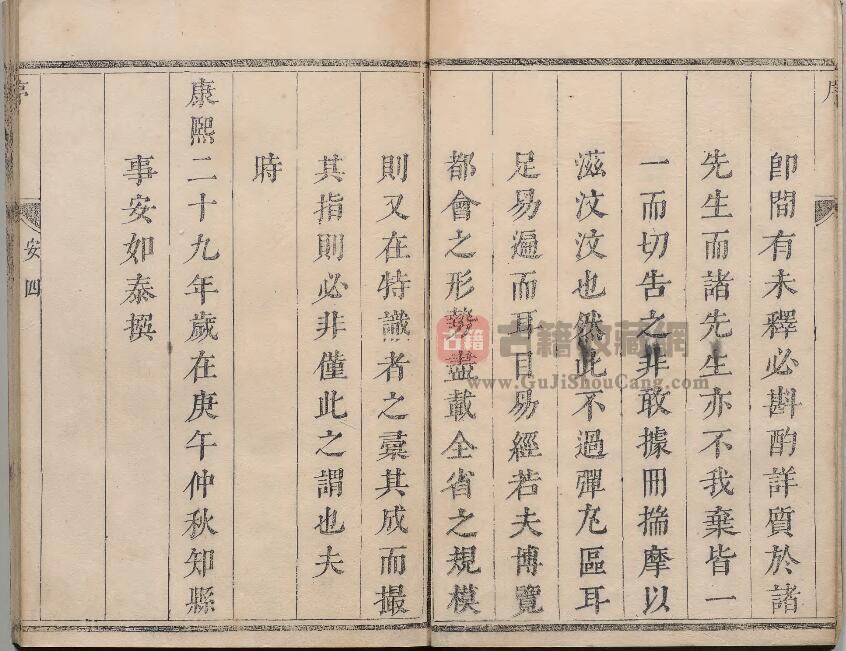 序
卽間有未釋必斟酌詳質於諸
先生而諸先生亦不我棄皆一
一而切告之非敢據冊揣摩以
滋汶汶也然此不過彈丸區耳
足易遍而耳目易經若夫博覽
都會之形勢盡載全省之規模
則又在特識者之彙其成而撮
其指則必非僅此之謂也夫
時
康熙二十九年歲在庚午仲秋知縣
事安如泰撰
序
安四
古籍
古籍收藏網
www.GuJiShouCang.com